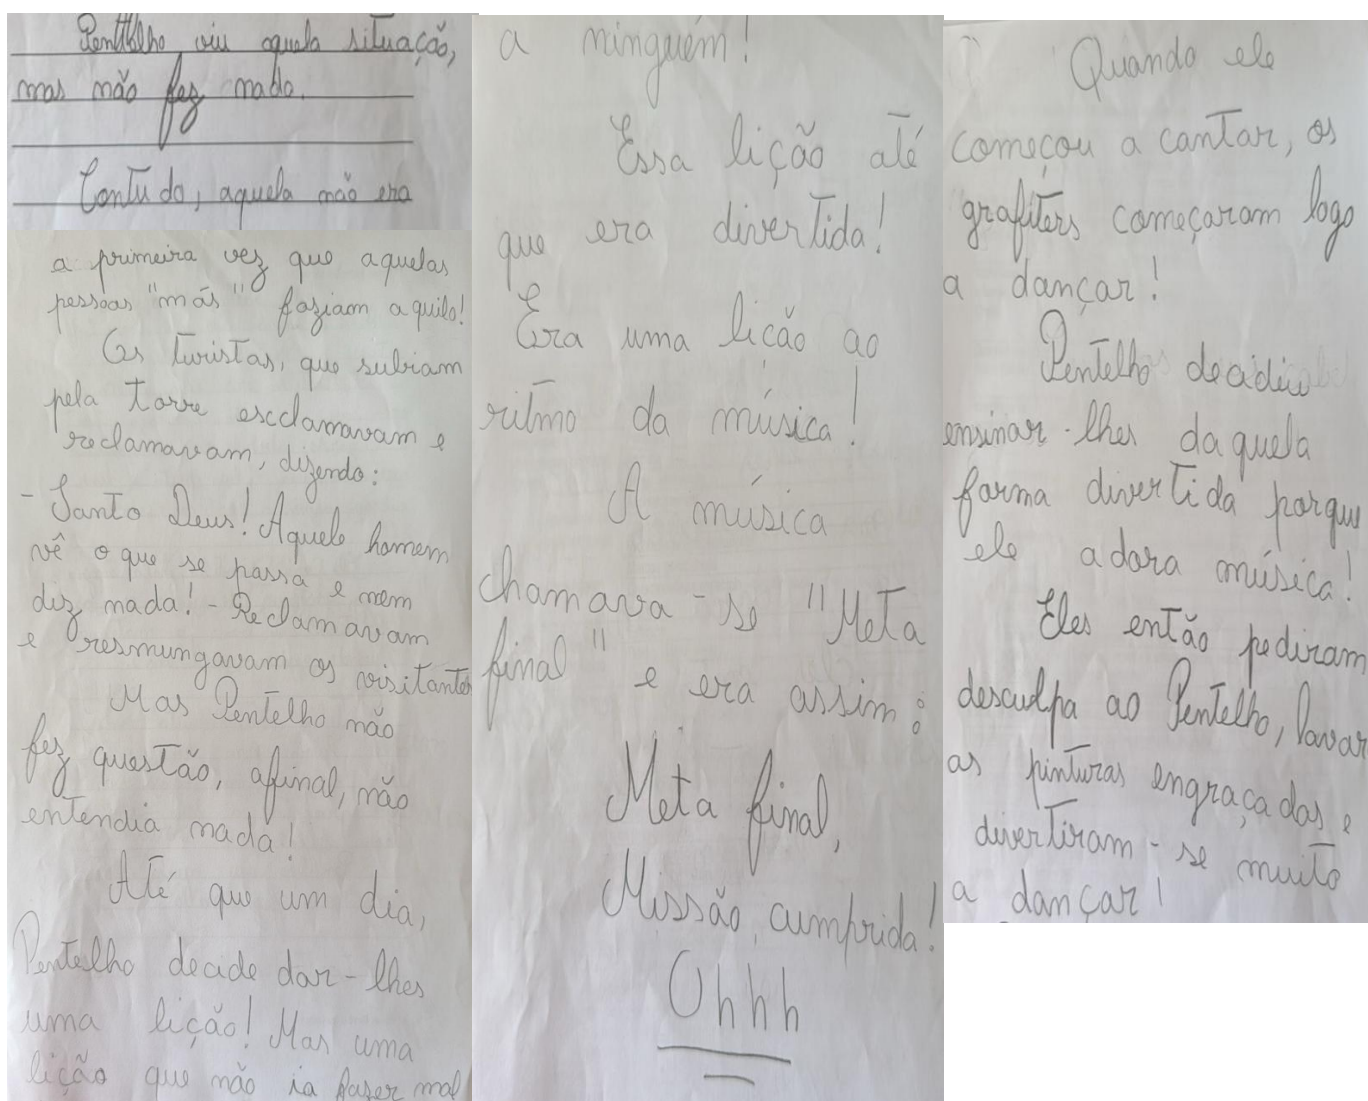 Pentelho viu aquela situação,
mas não fez nada.
Contudo, aquela não era
a primeira vez que aquelas
pessoas "más" faziam aquilo!
Os turistas, que subiam
pela torre escclamavam e
reclamavam, dizendo:
- Santo Deus! Aquele homem
vê o que se passa e nem
diz nada! - Reclamavam
e resmungavam os visitantes
Mas Pentelho não
fez questão, afinal, não
entendia nada!
Até que um dia,
Pentelho decide dar-lhes
uma lição! Mas uma
lição que não ia faser mal
a ninguém!
Essa lição até
que era divertida!
Era uma lição ao
ritmo da música!
A música
chamava-se "Meta
final" e era assim:
Meta final,
Missão cumprida!
Ohhh
Quando ele
começou a cantar, os
grafiters começaram logo
a dançar!
Pentelho decidiu
ensinar-lhes daquela
forma divertida porque
ele adora música!
Eles então pediram
desculpa ao Pentelho, lavar
as pinturas engraçadas e
divertiram-se muito
a dançar!